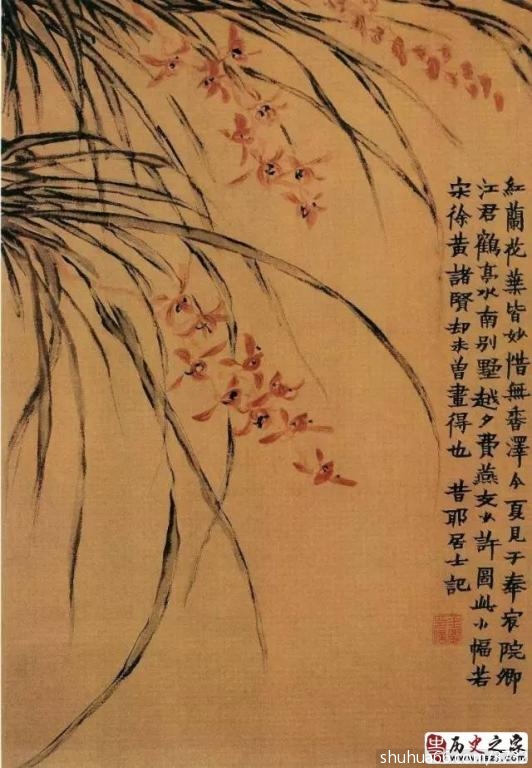 紅蘭花葉皆妙惜無香澤今夏見于奉宸院卿
江君鶴亭水南别墅越夕費燕支少許圖此小幅若
宋徐黄諸賢却未曾畫得也 昔耶居士記
历史之家
www.lszj.com